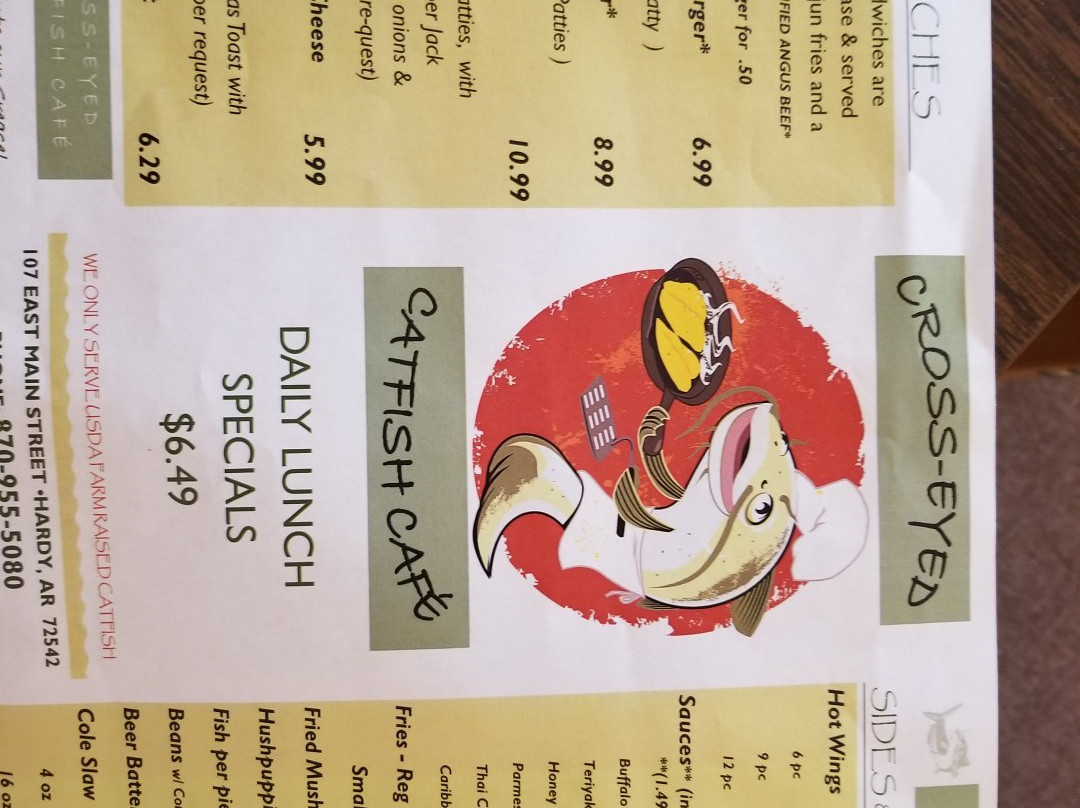 CHES
wiches are
& served
fries and a
ANGUS BEEF*
for .50
6.99
8.99
Patties )
10.99
atties, with
Jack
onions &
re-quest)
Cheese 5.99
Toast with
per request)
6.29
CROSS-EYED
CATFISH CAFE
DAILY LUNCH
SPECIALS
$6.49
WE ONLY SERVE USDA FARM RAISED CATFISH
107 EAST MAIN STREET •HARDY, AR 72542
870-955-5080
SS-EYED
FISH CAFÉ
SIDES
Hot Wings
6 pc
9 pc
12 pc
Sauces** (in
**(1.49
Buffalo
Teriyak
Honey
Parmes
Thai C
Caribb
Fries - Reg
Smal
Fried Mush
Hushpuppi
Fish per pie
Beans w/ Co
Beer Batte
Cole Slaw
4 oz
16 oz